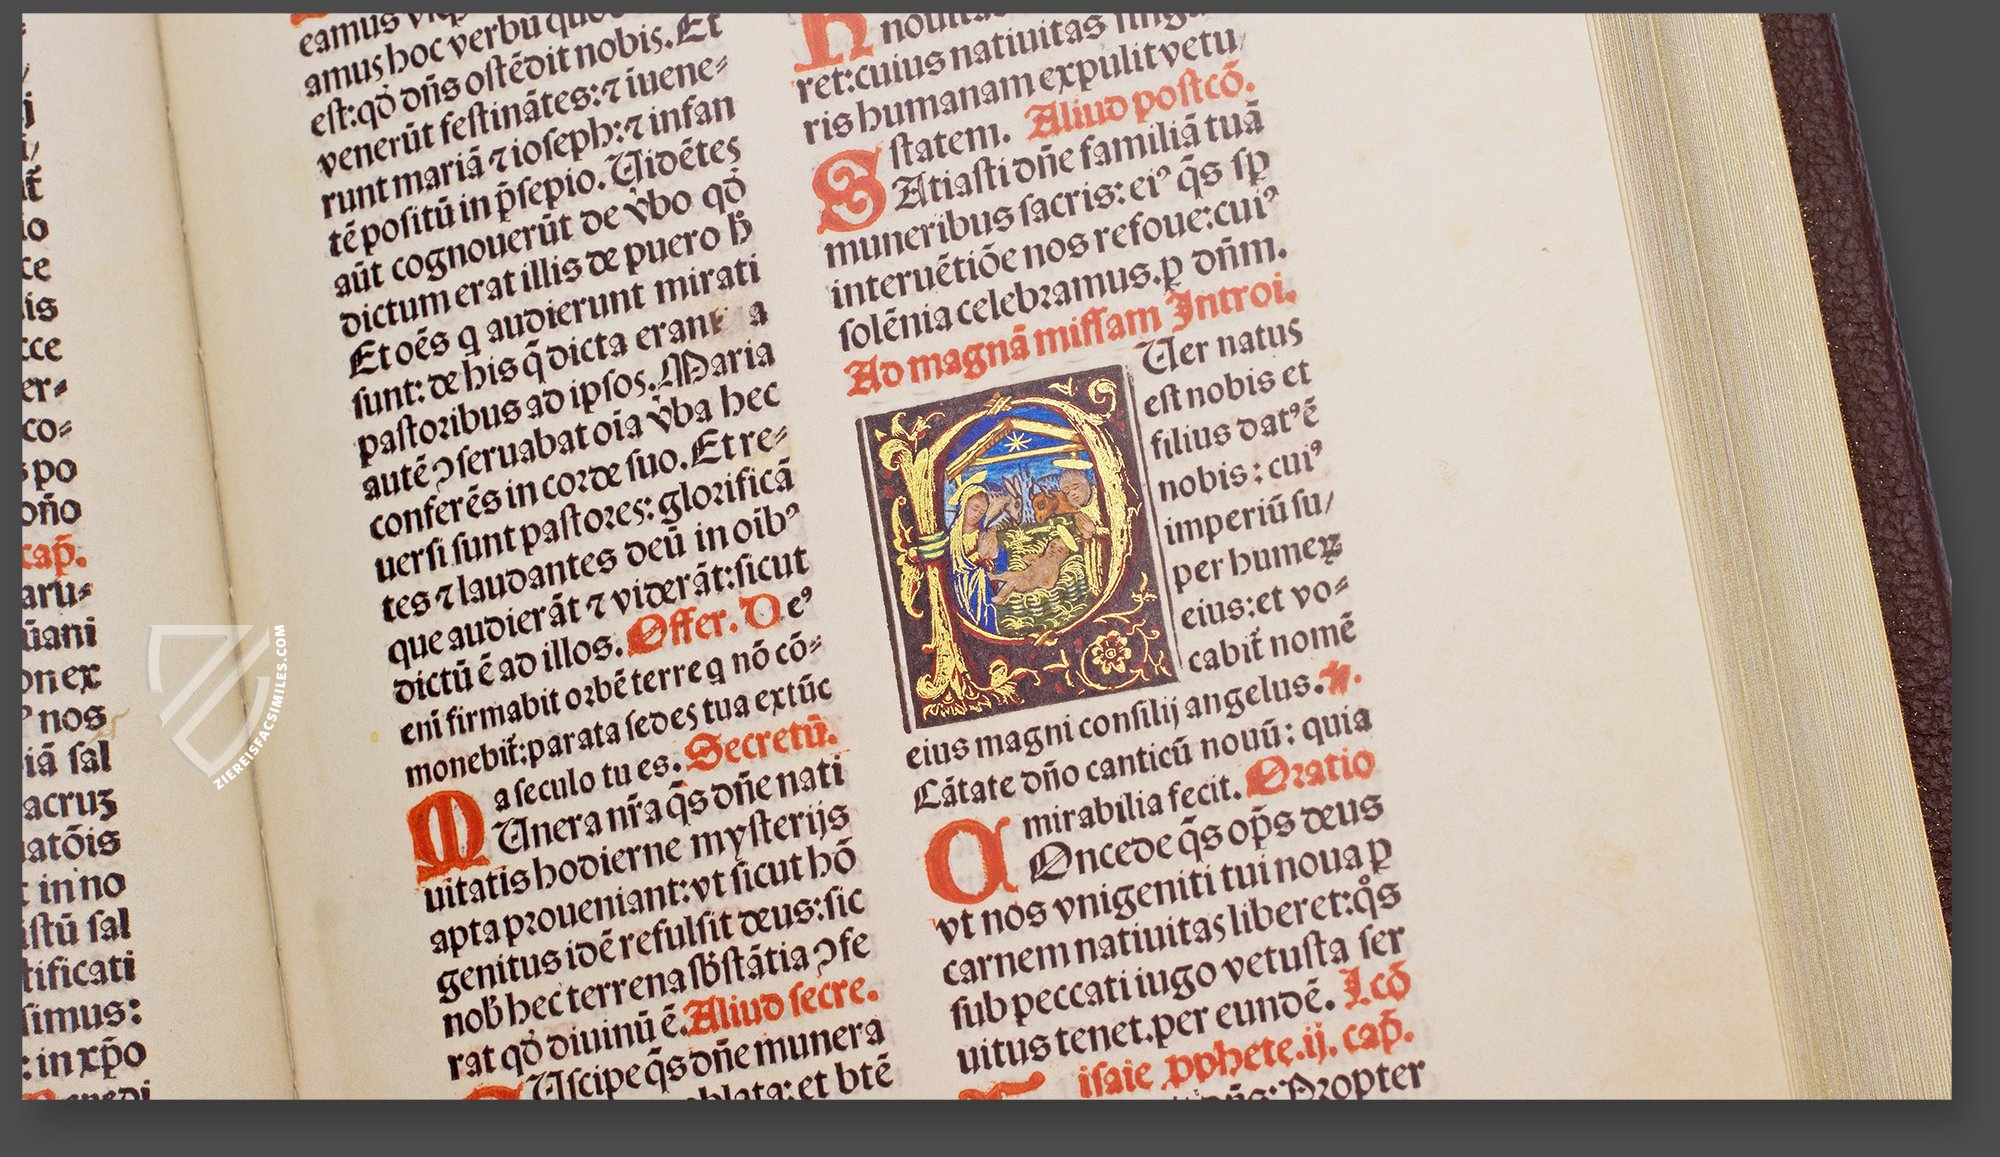 eamus
amus hoc verbū quod
est:qđ dn̄s ostēdit nobis.Et
venerūt festinātes:⁊ iuene⸗
runt mariā ⁊ ioseph:⁊ infan
tē positū in p̄sepio. Uidētes
aūt cognouerūt de v̓bo qđ
dictum erat illis de puero h̊
Et oēs q audierunt mirati
sunt: de his q̄ dicta erant a
pastoribus ad ipsos. Maria
autē ꝯseruabat oīa v̓ba hec
conferēs in corde suo. Et re⸗
uersi sunt pastores: glorificā
tes ⁊ laudantes deū in oīb⁹
que audierāt ⁊ viderāt:sicut
dictū ē ad illos. Offer. De⁹
eni firmabit orbē terre q nō cō⸗
monebit̄:parata sedes tua extūc
a seculo tu es. Secretū.
MUnera nr̄a q̄s dn̄e nati
uitatis hodierne mysterijs
apta proueniant:vt sicut hō
genitus idē refulsit deus:sic
nob̄ hec terrena sb̄stātia ꝯfe
rat qđ diuinū ē. Aliud secre.
Uscipe q̄s dn̄e munera
oblata: et btē
ret:cuius natiuitas singu
ris humanam expulit vetu/
statem. Aliud postcō.
SAtiasti dn̄e familiā tuā
muneribus sacris: ei⁹ q̄s sp̄
interuētiōe nos refoue:cui⁹
solēnia celebramus.ꝑ dn̄m.
Ad magnā missam Introi.
PUer natus
est nobis et
filius dat⁹ ē
nobis: cui⁹
imperiū su/
per humeꝝ
eius:et vo⸗
cabit̄ nomē
eius magni consilij angelus. ps.
Cātate dn̄o canticū nouū: quia
mirabilia fecit. Oratio
COncede q̄s op̄s deus
vt nos vnigeniti tui noua ꝑ
carnem natiuitas liberet:q̊s
sub peccati iugo vetusta ser
uitus tenet.per eundē. Lcō
isaie ꝓphete.ij. cap̄.
dn̄s: Propter
io
ce
is
cce
er⸗
co⸗
po
dn̄o
cap̄.
aru⸗
ūani
on ex
nos
iā sal
acruʒ
atōis
in no
istū sal
tificati
simus:
: in xp̄o
Benedi
ZIEREISFACSIMILES.COM